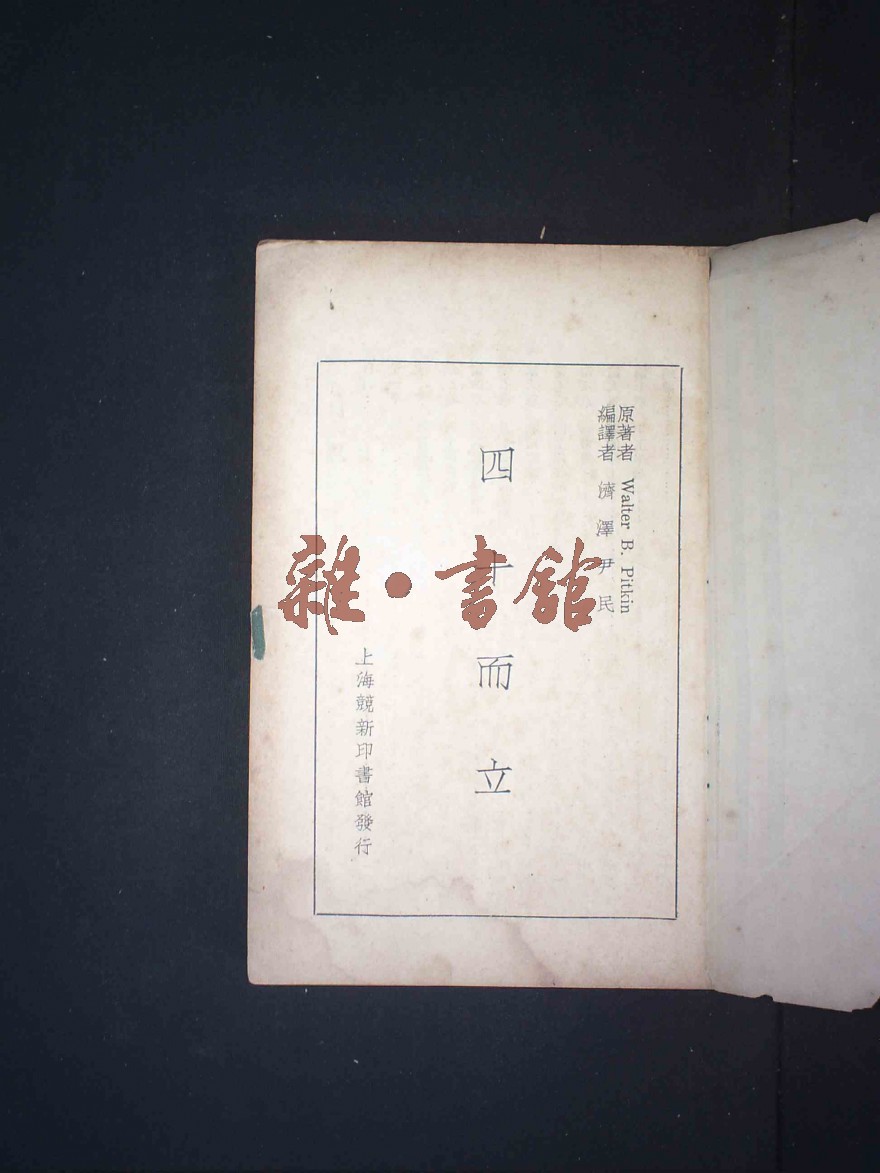 原著者 Walter B. Pitkin
編譯者 濟澤 尹民
四十而立
上海競新印書館發行
雜·書館